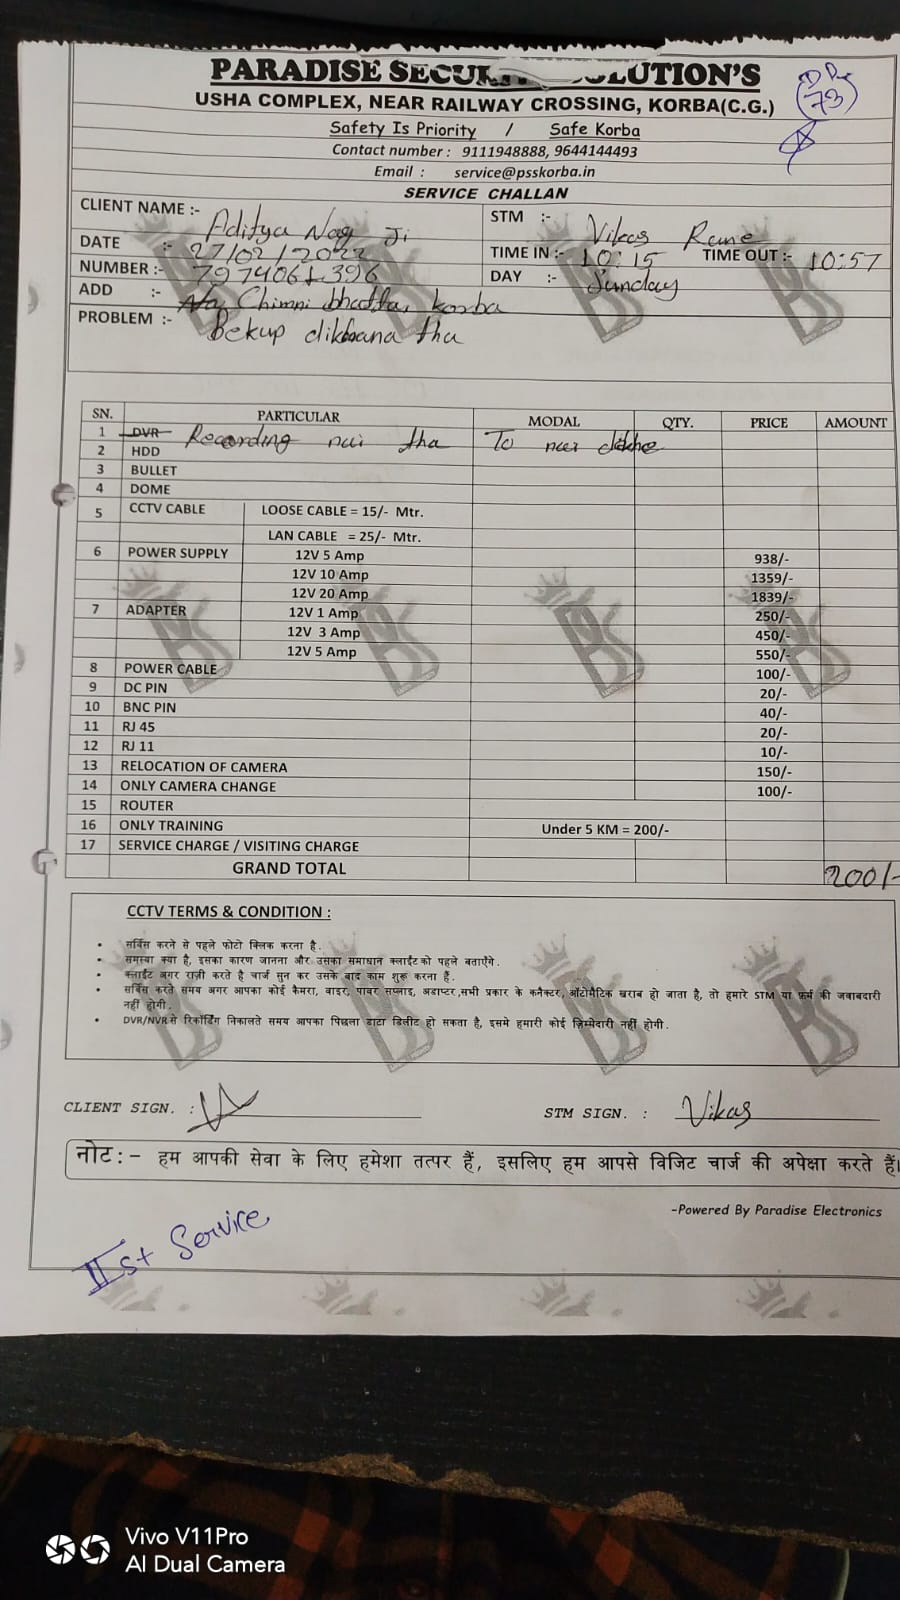 PARADISE SECUR SOLUTION'S
USHA COMPLEX, NEAR RAILWAY CROSSING, KORBA(C.G.)
73
Safety Is Priority / Safe Korba
Contact number : 9111948888, 9644144493
Email : service@psskorba.in
SERVICE CHALLAN
CLIENT NAME :- Aditya Nag Ji
STM :- Vikas Rane
DATE :- 27/02/2022
TIME IN :- 10:15 TIME OUT :- 10:57
NUMBER :- 7974061396
DAY :- Sunday
ADD :- Chimni bhatta, korba
PROBLEM :- Bekup dikhana tha
SN. PARTICULAR MODAL QTY. PRICE AMOUNT
1 DVR Recording nai tha To nai dekhe
2 HDD
3 BULLET
4 DOME
5 CCTV CABLE LOOSE CABLE = 15/- Mtr.
LAN CABLE = 25/- Mtr.
6 POWER SUPPLY 12V 5 Amp 938/-
12V 10 Amp 1359/-
12V 20 Amp 1839/-
7 ADAPTER 12V 1 Amp 250/-
12V 3 Amp 450/-
12V 5 Amp 550/-
8 POWER CABLE 100/-
9 DC PIN 20/-
10 BNC PIN 40/-
11 RJ 45 20/-
12 RJ 11 10/-
13 RELOCATION OF CAMERA 150/-
14 ONLY CAMERA CHANGE 100/-
15 ROUTER
16 ONLY TRAINING Under 5 KM = 200/-
17 SERVICE CHARGE / VISITING CHARGE
GRAND TOTAL 200/-
CCTV TERMS & CONDITION :
• सर्विस करने से पहले फोटो क्लिक करना है.
• समस्या क्या है, इसका कारण जानना और उसका समाधान क्लाईंट को पहले बताएँगे.
• क्लाईंट अगर राज़ी करते है चार्ज सुन कर उसके बाद काम शुरू करना हैं.
• सर्विस करते समय अगर आपका कोई कैमरा, वाइर, पावर सप्लाइ, अडाप्टर,सभी प्रकार के कनैक्टर, ऑटोमैटिक खराब हो जाता है, तो हमारे STM या फ़र्म की जवाबदारी
नहीं होगी.
• DVR/NVR से रिकॉर्डिंग निकालते समय आपका पिछला डाटा डिलीट हो सकता है, इसमे हमारी कोई ज़िम्मेदारी नहीं होगी.
CLIENT SIGN. :
STM SIGN. : Vikas
नोट:- हम आपकी सेवा के लिए हमेशा तत्पर हैं, इसलिए हम आपसे विजिट चार्ज की अपेक्षा करते हैं।
-Powered By Paradise Electronics
IIst Service
Vivo V11Pro
AI Dual Camera